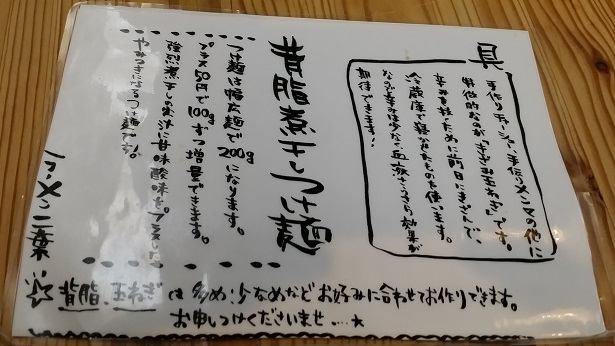 具
手作りチャーシュー、手作りメンマの他に
特徴的なのが"きざみ玉ねぎ"です。
辛みを抜くために前日にきざんで、
冷蔵庫で寝かせたものを使います。
なので辛さは少なく血液さらさら効果が
期待できます!
背脂煮干しつけ麺
つけ麺は幅広麺で200gになります。
プラス50円で100gずつ増量できます。
強烈煮干しの実汁に甘味酸味をプラスした
やみつきになるつけ麺です。
ラーメン二葉
背脂、玉ねぎは多め・少なめなどお好みに合わせてお作りできます。
お申しつけくださいませ....★